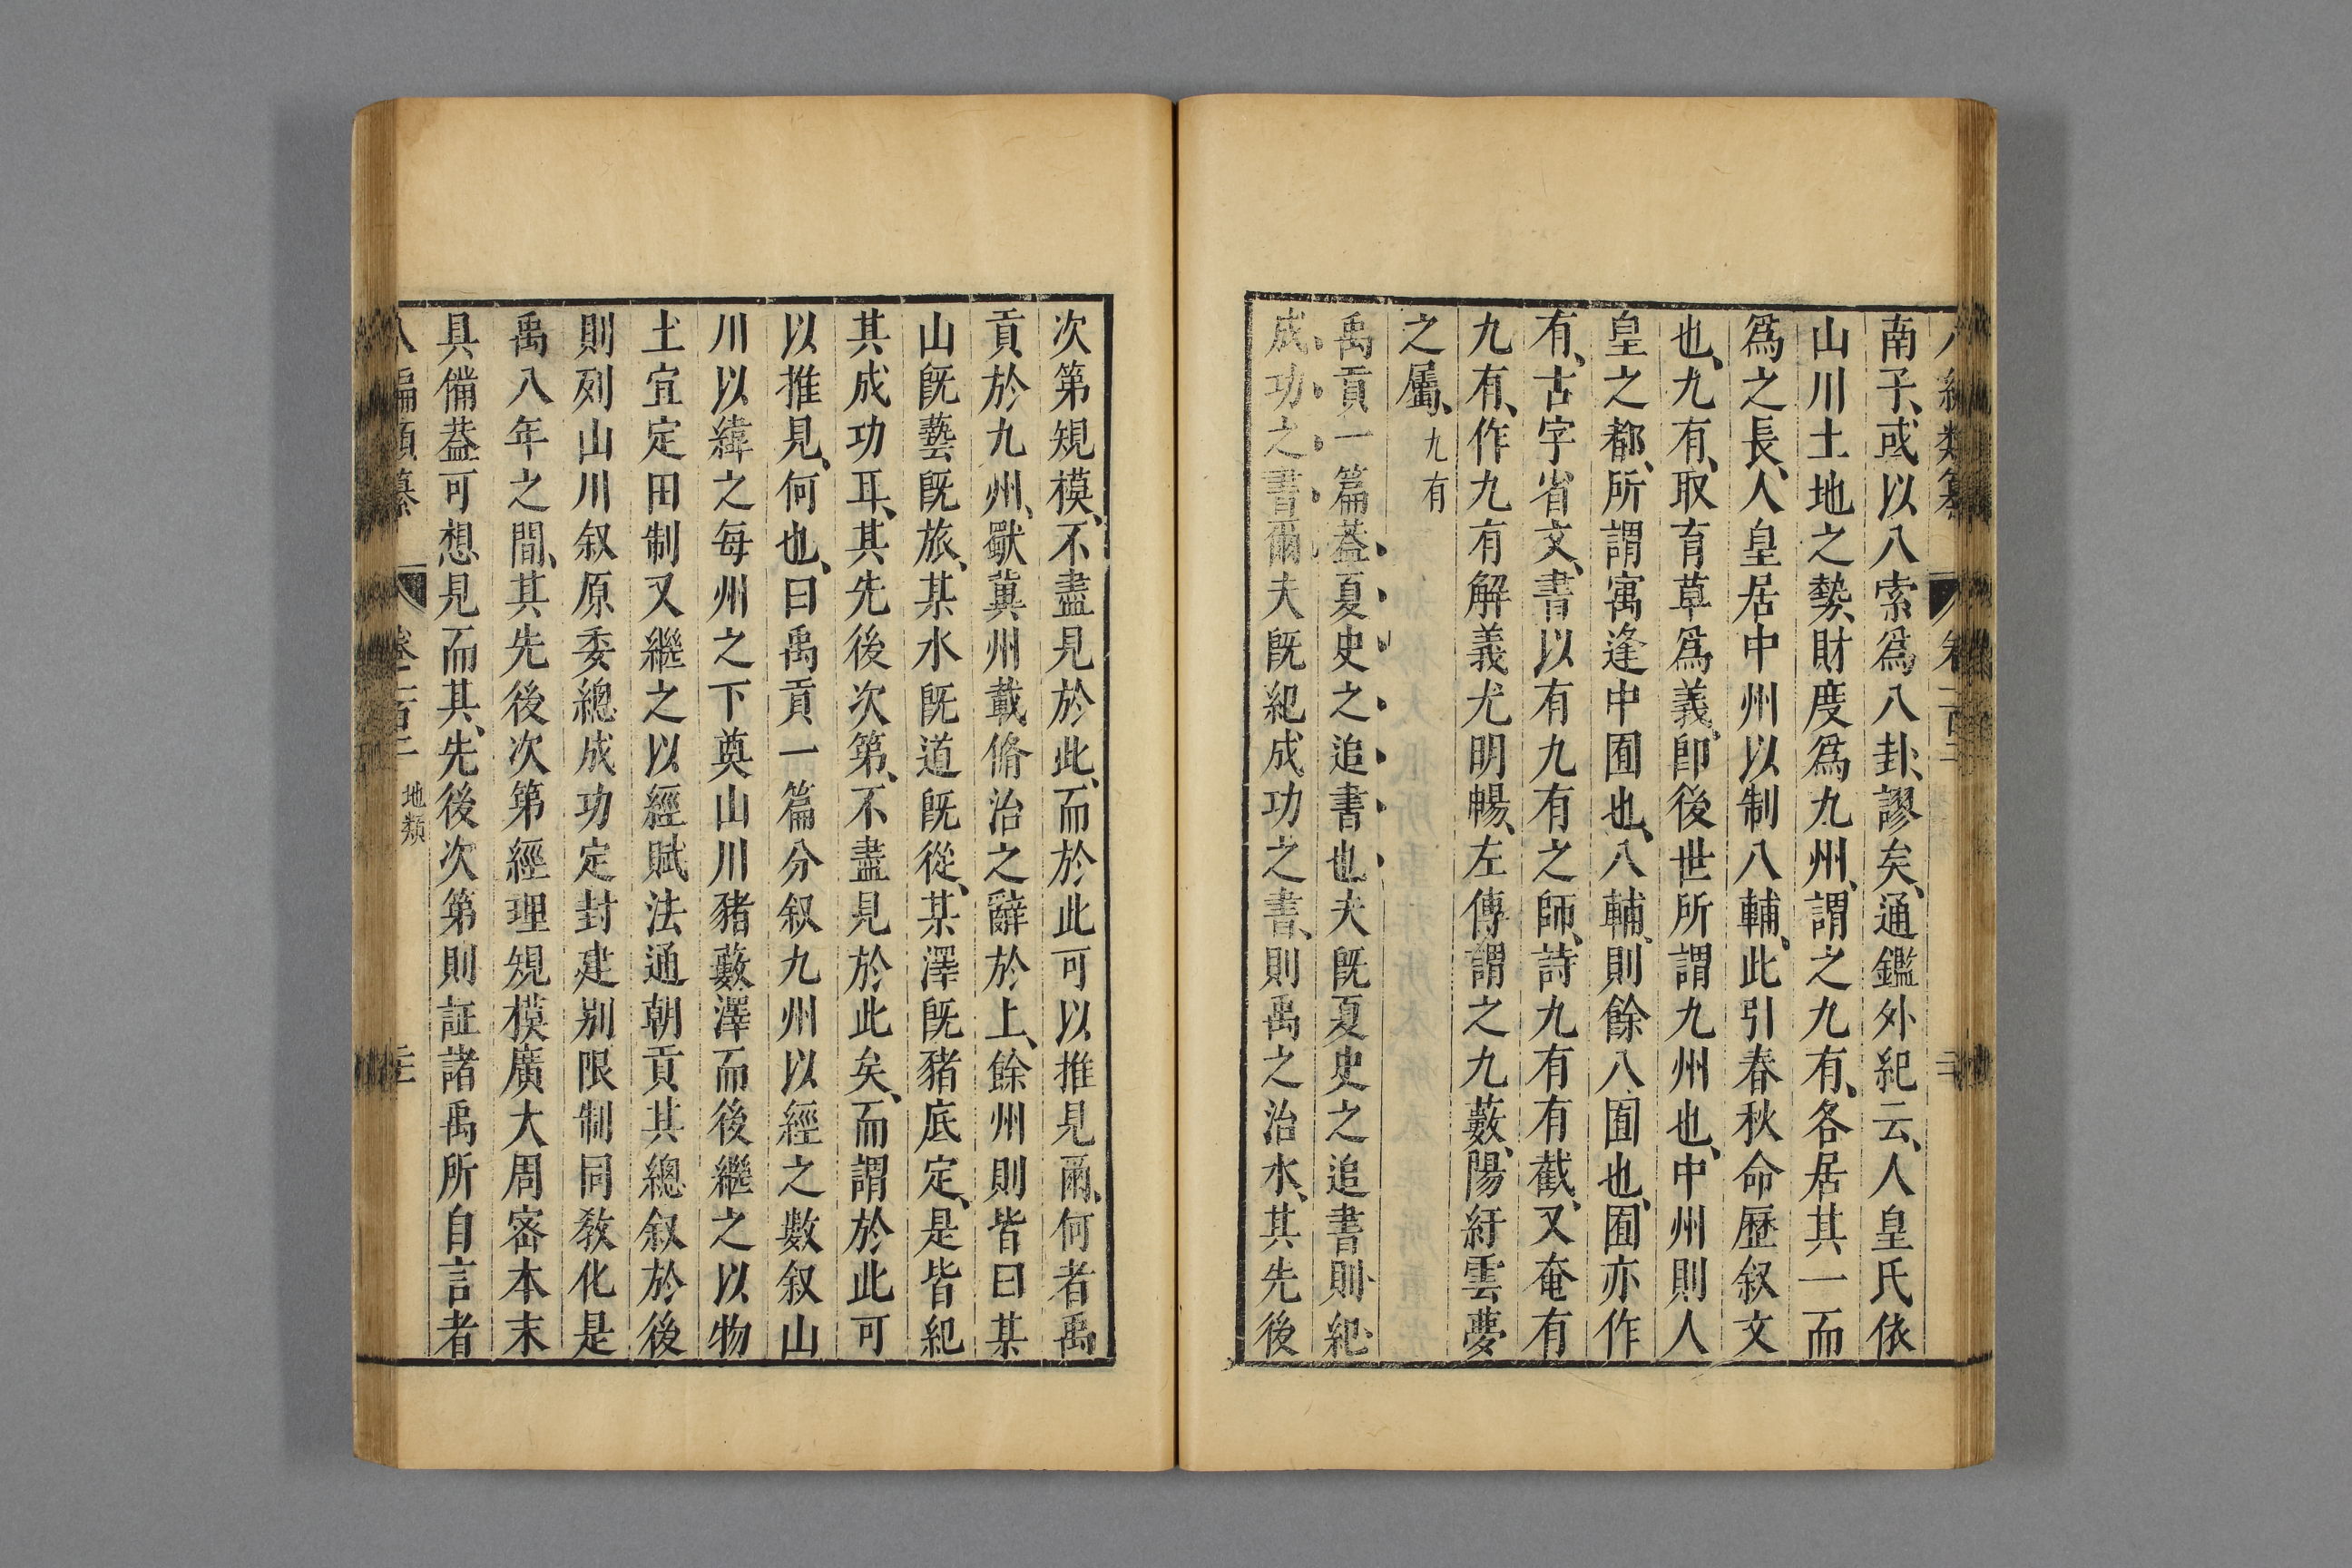 南子、或以八索爲八卦、謬矣、通鑑外紀云、人皇氏依
山川土地之勢、財度爲九州、謂之九有、各居其一而
爲之長、人皇居中州以制八輔、此引春秋命歷叙文
也、九有、取育草爲義、即後世所謂九州也、中州則人
皇之都、所謂寓逢中囿也、八輔、則餘八囿也、囿亦作
有、古字省文、書以有九有之師、詩九有有截、又奄有
九有、作九有解義尤明暢、左傳謂之九藪、陽紆雲夢
之屬、九有
禹貢一篇葢夏史之追書也夫旣夏史之追書則紀
成功之書爾夫旣紀成功之書、則禹之治水、其先後
次第規模、不盡見於此、而於此可以推見爾、何者禹
貢於九州、獸冀州載脩治之辭於上、餘州則皆曰某
山旣藝旣旅、某水旣道旣從、某澤旣豬底定、是皆紀
其成功耳、其先後次第、不盡見於此矣、而謂於此可
以推見、何也、曰禹貢一篇分叙九州以經之數叙山
川以緯之每州之下奠山川豬藪澤而後繼之以物
土宜定田制又繼之以經賦法通朝貢其總叙於後
則列山川叙原委總成功定封建别限制同敎化是
禹八年之間、其先後次第經理規模廣大周密本末
具備葢可想見而其、先後次第則証諸禹所自言者
八編類纂 卷一百二 地類